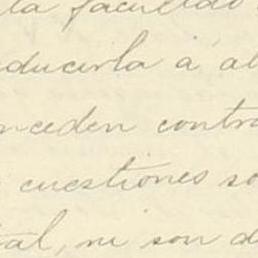 la facultad
ducirla á al
nceden contra
cuestiones so
tal, ni son d